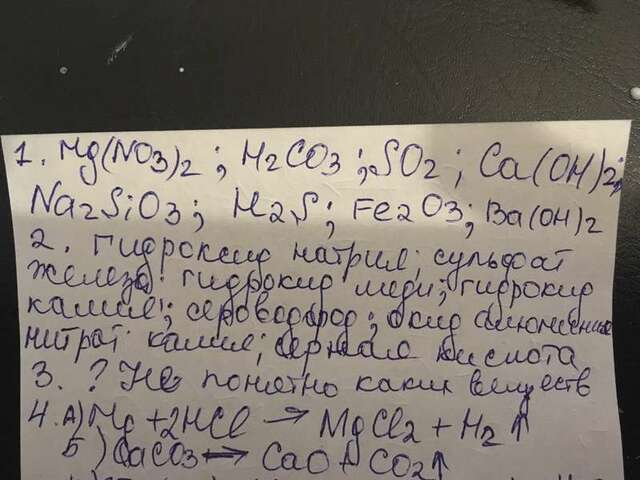 1. Mg(NO3)2; H2CO3; SO2; Ca(OH)2;
Na2SiO3; H2S; Fe2O3; Ba(OH)2
2. Гидроксид натрия; сульфат
железа; гидроксид меди; гидроксид
калия; сероводород; оксид алюминия
нитрат калия; кислота
3. ? Не понятно каких веществ
4. А) Mg + 2HCl → MgCl2 + H2↑
Б) CaCO3 → CaO CO2↑